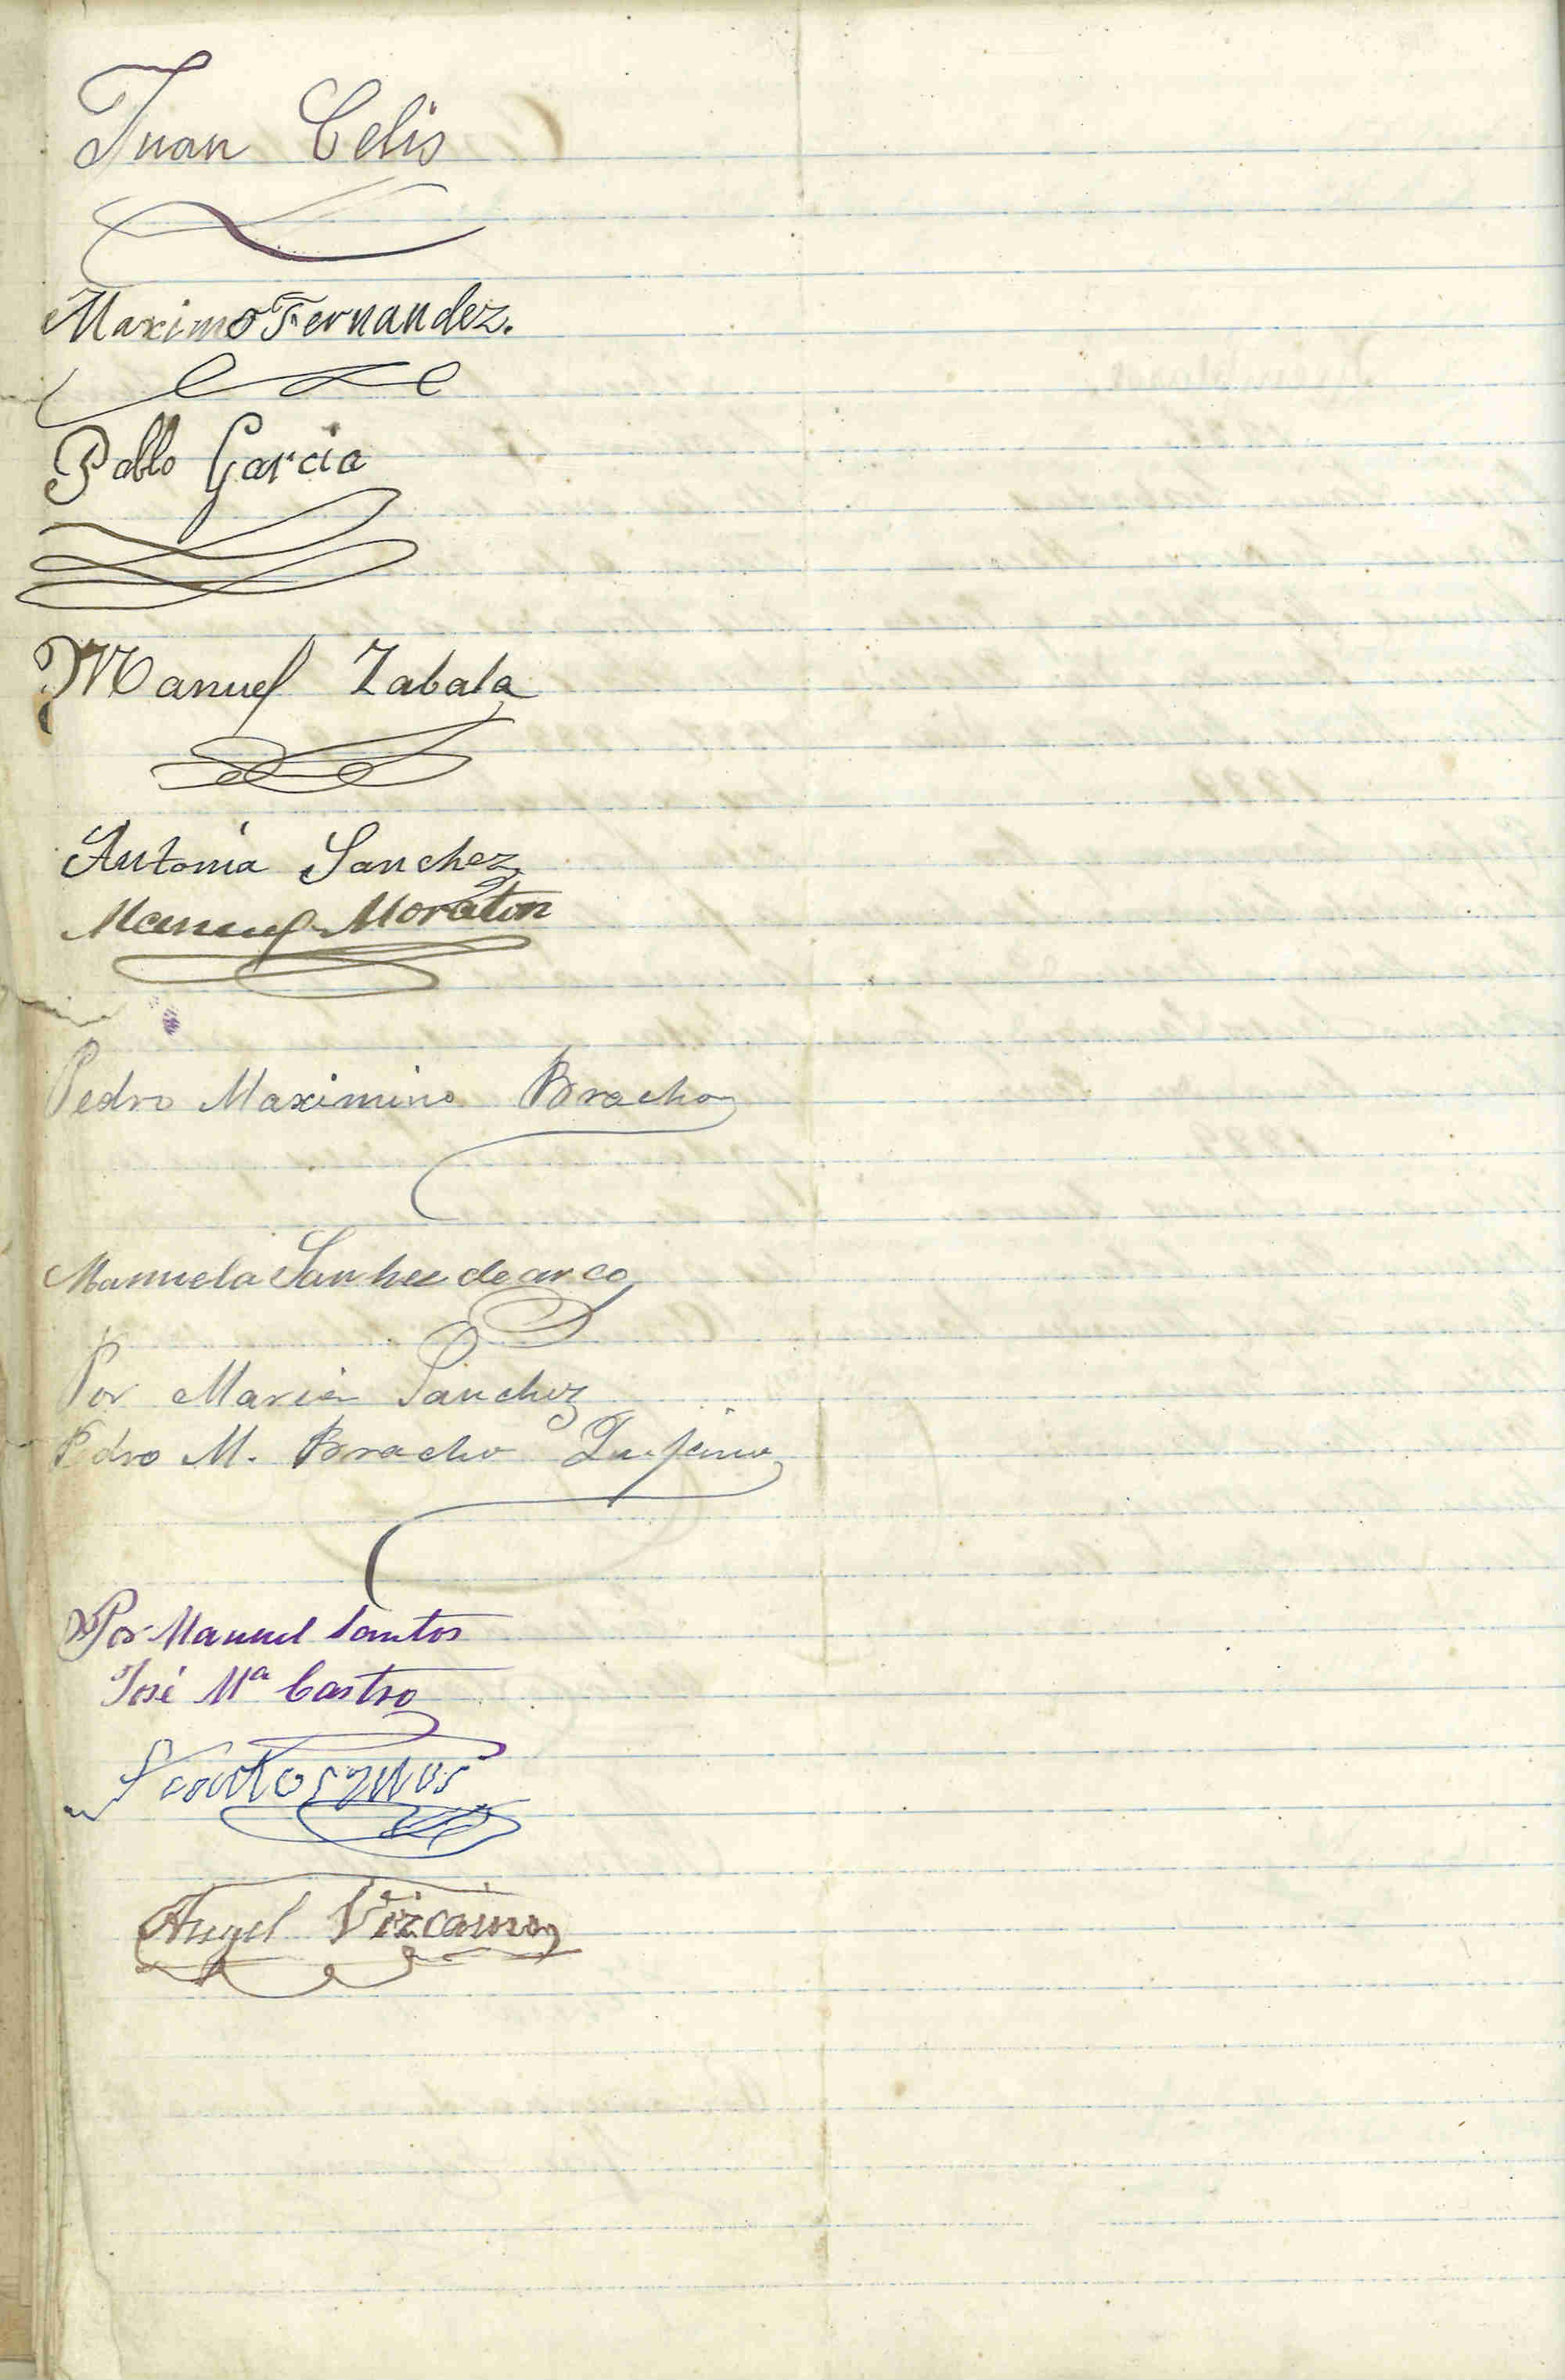 Juan Celis
Maximo Fernandez.
Pablo Garcia
Manuel Zabala
Antonia Sanchez
Manuel Moraton
Pedro Maximino Bracho
Manuela Sanhez de arco
Por Maria Sanchez
Pedro M. Bracho
Por Manuel Santos
José Mª Castro
Angel Vizcaino